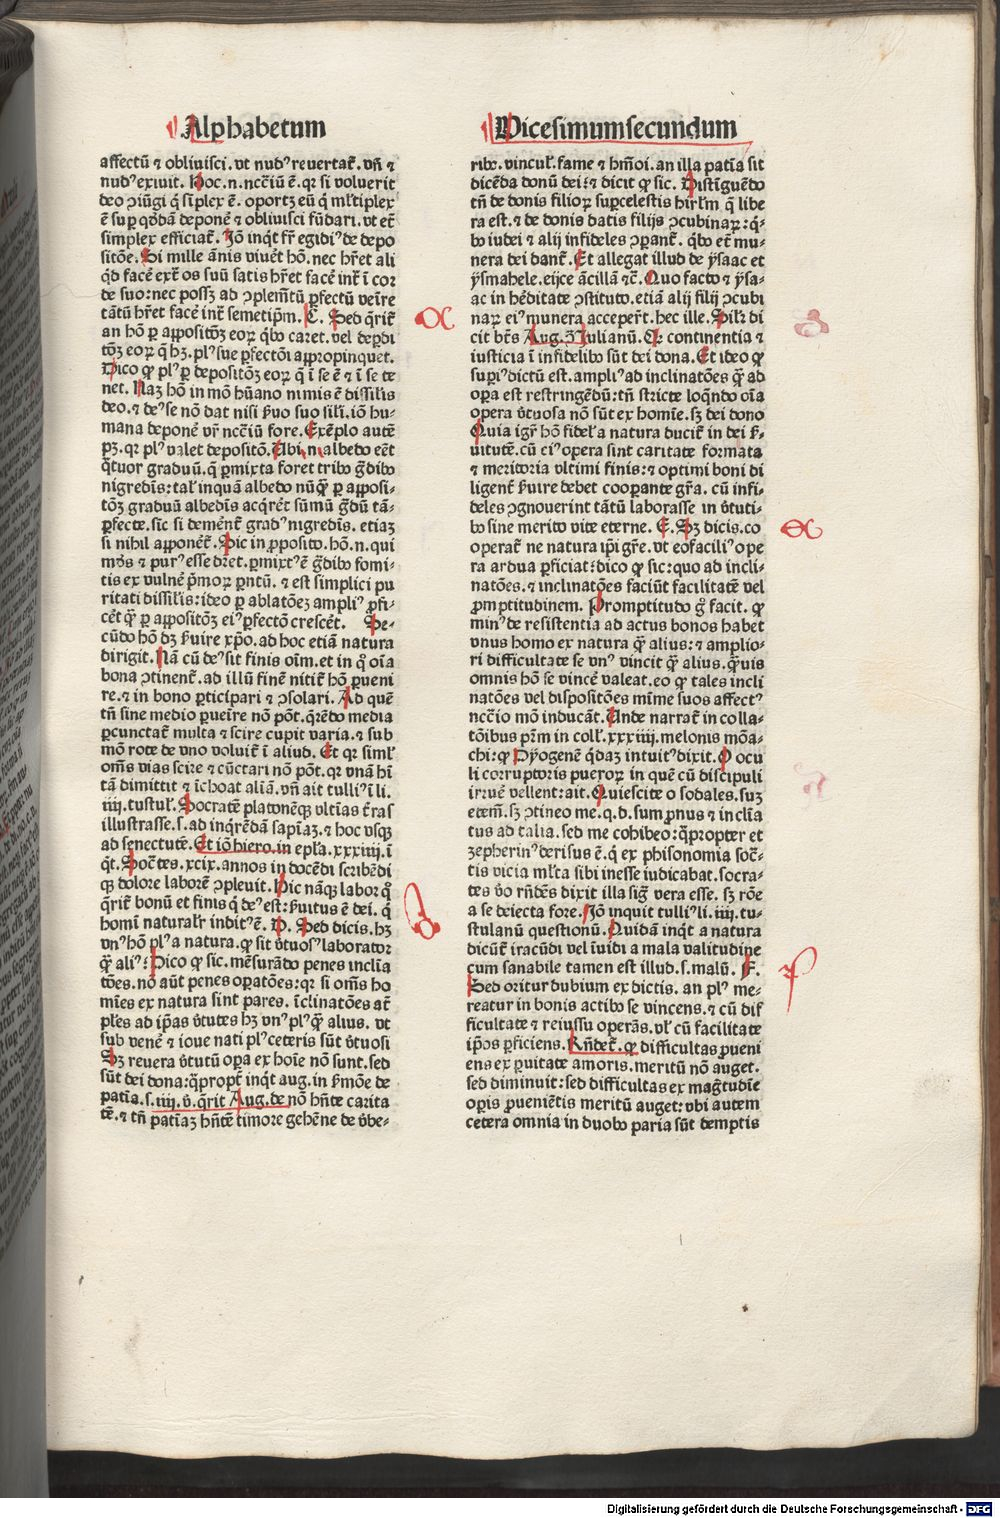 Alphabetum
affectū ⁊ obliuisci. vt nudꝰ reuertat᷑. vñ ⁊
nudꝰ exiuit. Hoc .n. ncc̄iū ē. qꝛ si voluerit
deo ꝯiūgi q̄ sīplex ē. oportꝫ eū q̄ ml̓tiplex
ē suꝑ quꝺdā deponē ⁊ obliuisci fūdari. vt et̄
simplex efficiat᷑. Iō inqt fr̄ egidiꝰ de depo
sitōe. Si mille ānis viuēt hō. nec hr̄et ali
qd facē ext̄ os suū satis hr̄et facē int̄ ī cor
de suo: nec possꝫ ad ꝯplemētū ꝑfectū veīre
tātū hr̄et facē int̄ semetip̄m. C. Sed qrit᷑
an hō ꝑ appositōꝫ eoꝝ qbꝰ caret. vel deꝑdi
tōꝫ eoꝝ q̄ hꝫ. plꝰ sue ꝑfectōi appropinquet.
Dico ꝙ plꝰ ꝑ depositōꝫ eoꝝ q̄ ī se ē ⁊ ī se te
net. Naꝫ hō in mō hūano nimis ē dissilis
deo. ⁊ deꝰ se nō dat nisi ẜuo suo sili. iō hu-
mana deponē vr̄ ncc̄iū fore. Exēplo autē
pꝫ. qꝛ plꝰ valet depositō. Ubi .n. albedo eēt
q̄tuor graduū. q̄ ꝑmixta foret tribꝰ g̃dibꝰ
nigredīs: tal̓ inquā albedo nūq̄ ꝑ apposi-
tōꝫ graduū albedīs acqr̄et sūmū g̃dū tā-
ꝑfecte. sic si demēnt᷑ gradꝰ nigredīs. etiaꝫ
si nihil apponēt᷑. Sic in ꝓposito. hō .n. qui
mūdꝰ ⁊ purꝰ esse dꝫet. ꝑmixtꝰ ē g̃dibꝰ fomi-
tis ex vulnē pͥmoꝝ pn̄tū. ⁊ est simplici pu
ritati dissilis: ideo ꝑ ablatōeꝫ ampliꝰ ꝓfi-
cēt q̄ ꝑ appositōꝫ eiꝰ ꝑfectō crescēt. Se-
cūdo hō dꝫ ẜuire xp̄o. ad hoc etiā natura
dirigit. Nā cū deꝰ sit finis oīm. et in q̊ oīa
bona ꝯtinent᷑. ad illū finē nitit᷑ hō ꝑueni
re. ⁊ in bono ꝑticipari ⁊ ꝯsolari. Ad quē
tn̄ sine medio ꝑueīre nō pōt. qr̄edo media
ꝑcunctat᷑ multa ⁊ scire cupit varia. ⁊ sub
mō rote de vno voluit᷑ ī aliud. Et qꝛ siml̓
om̄s vias scire ⁊ cūctari nō pōt. qꝛ vnā hī
tā dimittit ⁊ īchoat aliā. vñ ait tulliꝰ ī li.
iiij. tuscul̓. Socratē platonēqꝫ vltīas t̄ras
illustrasse .s. ad inqr̄ēdā sapīaꝫ. ⁊ hoc vsqꝫ
ad senectutē. Et iō hiero. in epl̓a .xxxiiij. ī
q̇t. Socr̄tes .xcix. annos in docēdi scribēdi
qꝫ dolore laborē ꝯpleuit. Hic nāqꝫ labor q̊
qrit᷑ bonū et finis q̄ deꝰ est: ẜuitus ē dei. q̄
homī naturalr̄ inditꝰ ē. D. Sed dicis. hꝫ
vnꝰ hō plꝰ a natura. ꝙ sit v̓tuosꝰ laborator
q̄ aliꝰ: Dico ꝙ sic. mēsurādo penes inclīa
tōes. nō aūt penes oꝑatōes: qꝛ si om̄s ho
mīes ex natura sint pares. īclinatōes at̄
pl̄es ad ip̄as v̓tutes hꝫ vnꝰ plꝰ q̄ alius. vt
sub venē ⁊ ioue nati plꝰ ceteris sūt v̓tuosi
Sꝫ reuera v̓tutū oꝑa ex hoīe nō sunt. sed
sūt dei dona: q̄propt̄ inqt aug. in ẜmōe de
patīa .s. iiij. v̓. qrit Aug. de nō hn̄te carita
tē. ⁊ tn̄ patīaꝫ hn̄tē timore gehēne de v̓be-
Vicesimumsecundum
ribꝰ. vincul̓. fame ⁊ hm̄oi. an illa patīa sit
dicēda donū dei: ⁊ dicit ꝙ sic. Distīguēdo
tn̄ de donis filioꝝ suꝑcelestis hirl̄m q̄ libe
ra est. ⁊ de donis datis filijs ꝯcubinaꝝ: q̄-
bꝰ iudei ⁊ alij infideles ꝯꝑant᷑. qbꝰ et̄ mu-
nera dei dant᷑. Et allegat illud de ysaac et
ysmahele. eijce ancillā ⁊c̄. Quo facto ⁊ ysa-
ac in hēditate ꝯstituto. etiā alij filij ꝯcubi
naꝝ eiꝰ munera acceper̄t. hec ille. Silr̄ di
cit bt̄s Aug. ꝯ̄ Iulianū. Et continentia ⁊
iusticia ī infidelibꝰ sūt dei dona. Et ideo ꝙ
supiꝰ dictū est. ampliꝰ ad inclinatōes q̄ ad
oꝑa est restringēdū: tn̄ stricte loq̄ndo oīa
opera v̓tuosa nō sūt ex homīe. sꝫ dei dono
Quia igr̄ hō fidelꝰ a natura ducit᷑ in dei ẜ-
uitutē. cū eiꝰ oꝑa sint caritate formata
⁊ meritoria vltimi finis: ⁊ optimi boni di
ligent᷑ ẜuire debet cooꝑante gr̄a. cū infi-
deles ꝯgnouerint tātū laborasse in v̓tuti-
bꝰ sine merito vite eterne. E. Sꝫ dicis. co
operat᷑ ne natura ip̄i gr̄e. vt eo faciliꝰ ope
ra ardua ꝑficiat: dico ꝙ sic: quo ad incli-
natōes. ⁊ inclinatōes faciūt facilitatē vel
ꝓmptitudinem. Promptitudo g̊ facit. ꝙ
minꝰ de resistentia ad actus bonos habet
vnus homo ex natura q̄ alius: ⁊ amplio-
ri difficultate se vnꝰ vincit q̄ alius. q̄uis
omnis hō se vincē valeat. eo ꝙ tales incli
natōes vel dispositōes mīme suos affectꝰ
ncc̄io mō inducāt. Unde narrat᷑ in colla-
tōibus pr̄m in coll̓. xxxiiij. melonis mōa-
chi: ꝙ Dyogenē q̄daꝫ intuitꝰ dixit. O ocu
li corruptoris pueroꝝ in quē cū discipuli
irruē vellent: ait. Quiescite o sodales. suꝫ
etem̄. sꝫ ꝯtineo me. q. d. sum ꝓnus ⁊ inclīa
tus ad talia. sed me cohibeo: q̄propter et
zepherinꝰ derisus ē. q̄ ex phisonomia socr̄-
tis vicia ml̓ta sibi inesse iudicabat. socra-
tes v̓o rn̄dēs dixit illa sig̃ vera esse. sꝫ rōe
a se deiecta fore. Iō inquit tulliꝰ li. iiij. tu-
sculanū questionū. Quidā inqt a natura
dicūt᷑ iracūdi vel īuidi a mala valitudine
cum sanabile tamen est illud .s. malū. F.
Sed oritur dubium ex dictis. an plꝰ me-
reatur in bonis actibꝰ se vincens. ⁊ cū dif
ficultate ⁊ reiussu operās. vl̓ cū facilitate
ip̄os ꝑficiens. Rn̄det᷑. ꝙ difficultas ꝓueni
ens ex ꝑuitate amoris. meritū nō auget.
sed diminuit: sed difficultas ex mag̃tudīe
oꝑis ꝓueniētis meritū auget: vbi autem
cetera omnia in duobꝰ paria sūt demptis
Digitalisierung gefördert durch die Deutsche Forschungsgemeinschaft - DFG